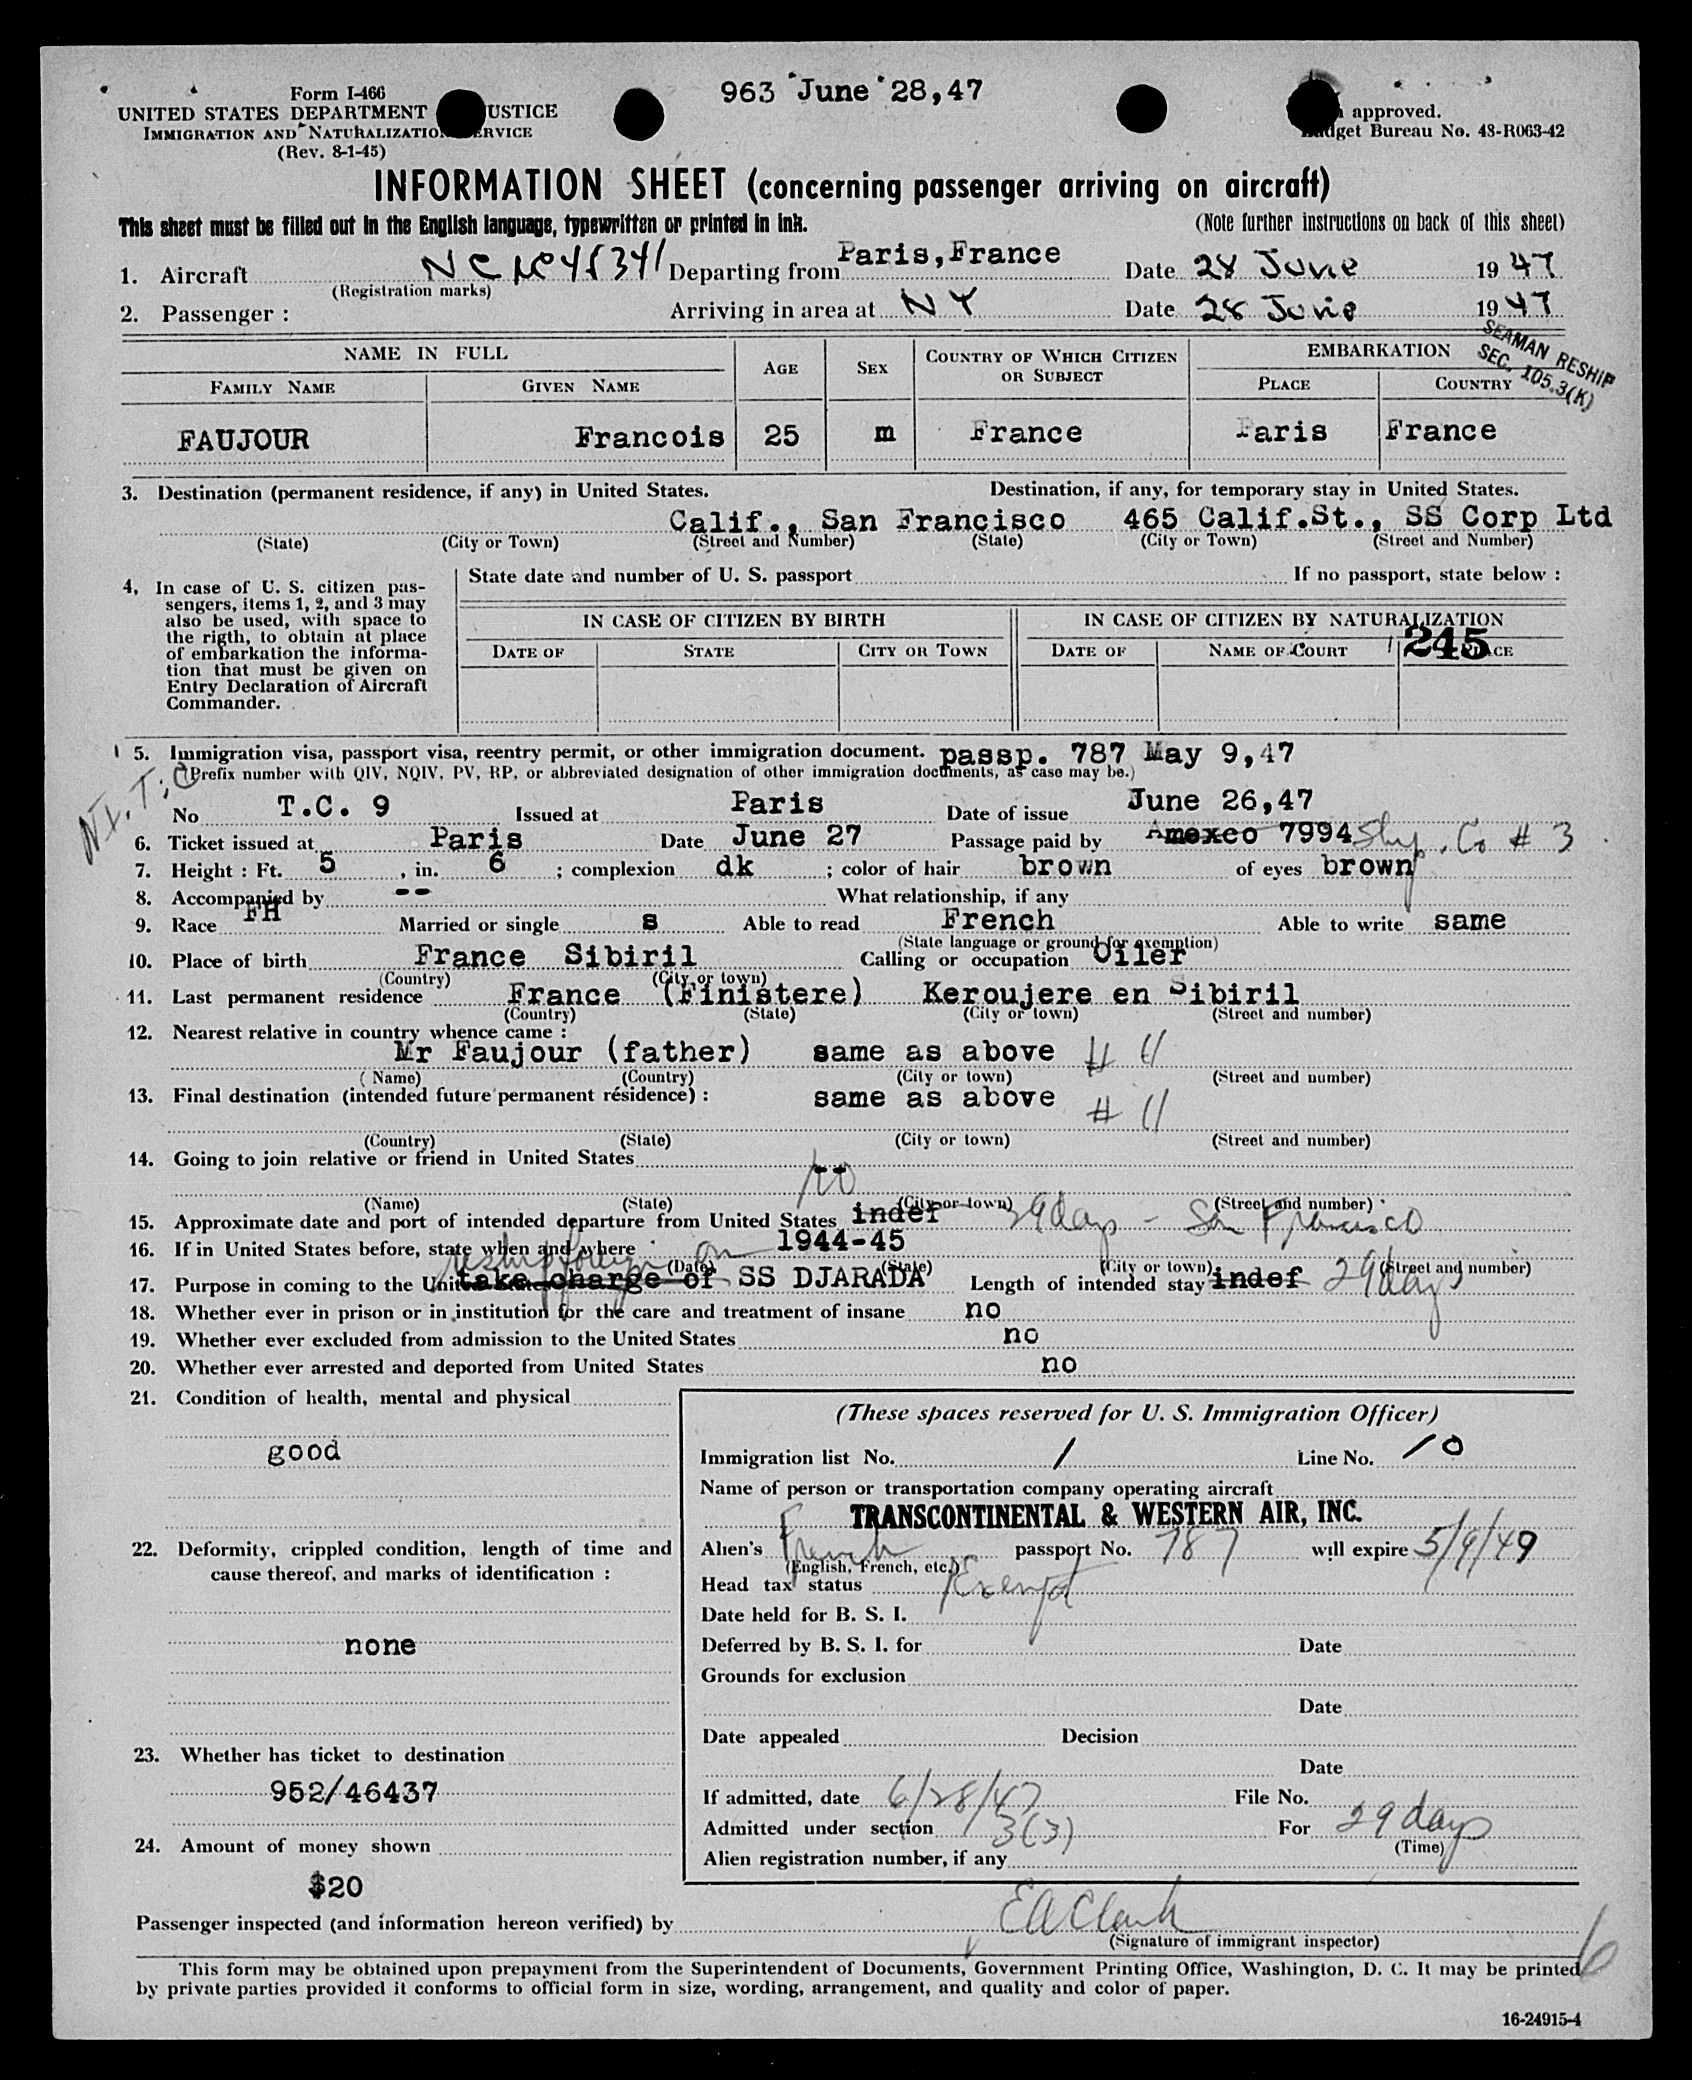 963 June 28,47
Form I-466
UNITED STATES DEPARTMENT USTICE
IMMIGRATION AND NATURALIZATION ERVICE
(Rev. 8-1-45)
approved.
Budget Bureau No. 43-R063-42
INFORMATION SHEET (concerning passenger arriving on aircraft)
This sheet must be filled out in the English language, typewritten or printed in ink. (Note further instructions on back of this sheet)
1. Aircraft NC Departing from Paris,France Date 28 June 1947
(Registration marks)
2. Passenger : Arriving in area at NY Date 28 June 1947
SEAMAN RESHIP
SEC. 105.3(K)
NAME IN FULL AGE SEX COUNTRY OF WHICH CITIZEN OR SUBJECT EMBARKATION
FAMILY NAME GIVEN NAME PLACE COUNTRY
FAUJOUR Francois 25 m France Paris France
3. Destination (permanent residence, if any) in United States. Destination, if any, for temporary stay in United States.
Calif., San Francisco 465 Calif.St., SS Corp Ltd
(State) (City or Town) (Street and Number) (State) (City or Town) (Street and Number)
4, In case of U. S. citizen pas-
sengers, items 1, 2, and 3 may
also be used, with space to
the rigth, to obtain at place
of embarkation the informa-
tion that must be given on
Entry Declaration of Aircraft
Commander.
State date and number of U. S. passport If no passport, state below :
IN CASE OF CITIZEN BY BIRTH IN CASE OF CITIZEN BY NATURALIZATION
DATE OF STATE CITY OR TOWN DATE OF NAME OF COURT PLACE
245
5. Immigration visa, passport visa, reentry permit, or other immigration document. passp. 787 May 9,47
(Prefix number with QIV, NQIV, PV, RP, or abbreviated designation of other immigration documents, as case may be.)
No T.C. 9 Issued at Paris Date of issue June 26,47
6. Ticket issued at Paris Date June 27 Passage paid by Amexco 7994 Shp. Co # 3
7. Height : Ft. 5 , in. 6 ; complexion dk ; color of hair brown of eyes brown
8. Accompanied by -- What relationship, if any
9. Race FH Married or single s Able to read French Able to write same
(State language or ground for exemption)
10. Place of birth France Sibiril Calling or occupation Oiler
(Country) (City or town)
11. Last permanent residence France (Finistere) Keroujere en Sibiril
(Country) (State) (City or town) (Street and number)
12. Nearest relative in country whence came :
Mr Faujour (father) same as above # 11
( Name) (Country) (City or town) (Street and number)
13. Final destination (intended future permanent résidence) : same as above # 11
(Country) (State) (City or town) (Street and number)
14. Going to join relative or friend in United States --
no
(Name) (State) (City or town) (Street and number)
15. Approximate date and port of intended departure from United States indef 29 days - San Francisco
16. If in United States before, state when and where 1944-45
(Date) (State) (City or town) (Street and number)
reship foreign on
17. Purpose in coming to the United States take charge of SS DJARADA Length of intended stay indef 29 days
18. Whether ever in prison or in institution for the care and treatment of insane no
19. Whether ever excluded from admission to the United States no
20. Whether ever arrested and deported from United States no
21. Condition of health, mental and physical
good
22. Deformity, crippled condition, length of time and
cause thereof, and marks of identification :
none
23. Whether has ticket to destination
952/46437
24. Amount of money shown
$20
(These spaces reserved for U. S. Immigration Officer)
Immigration list No. 1 Line No. 10
Name of person or transportation company operating aircraft
TRANSCONTINENTAL & WESTERN AIR, INC.
Alien's French passport No. 787 will expire 5/9/49
(English, French, etc.)
Head tax status Exempt
Date held for B. S. I.
Deferred by B. S. I. for Date
Grounds for exclusion
Date
Date appealed Decision
Date
If admitted, date 6/28/47 File No.
Admitted under section 3(3) For 29 days
(Time)
Alien registration number, if any
Passenger inspected (and information hereon verified) by EA Clark
(Signature of immigrant inspector)
6
This form may be obtained upon prepayment from the Superintendent of Documents, Government Printing Office, Washington, D. C. It may be printed
by private parties provided it conforms to official form in size, wording, arrangement, and quality and color of paper.
16-24915-4